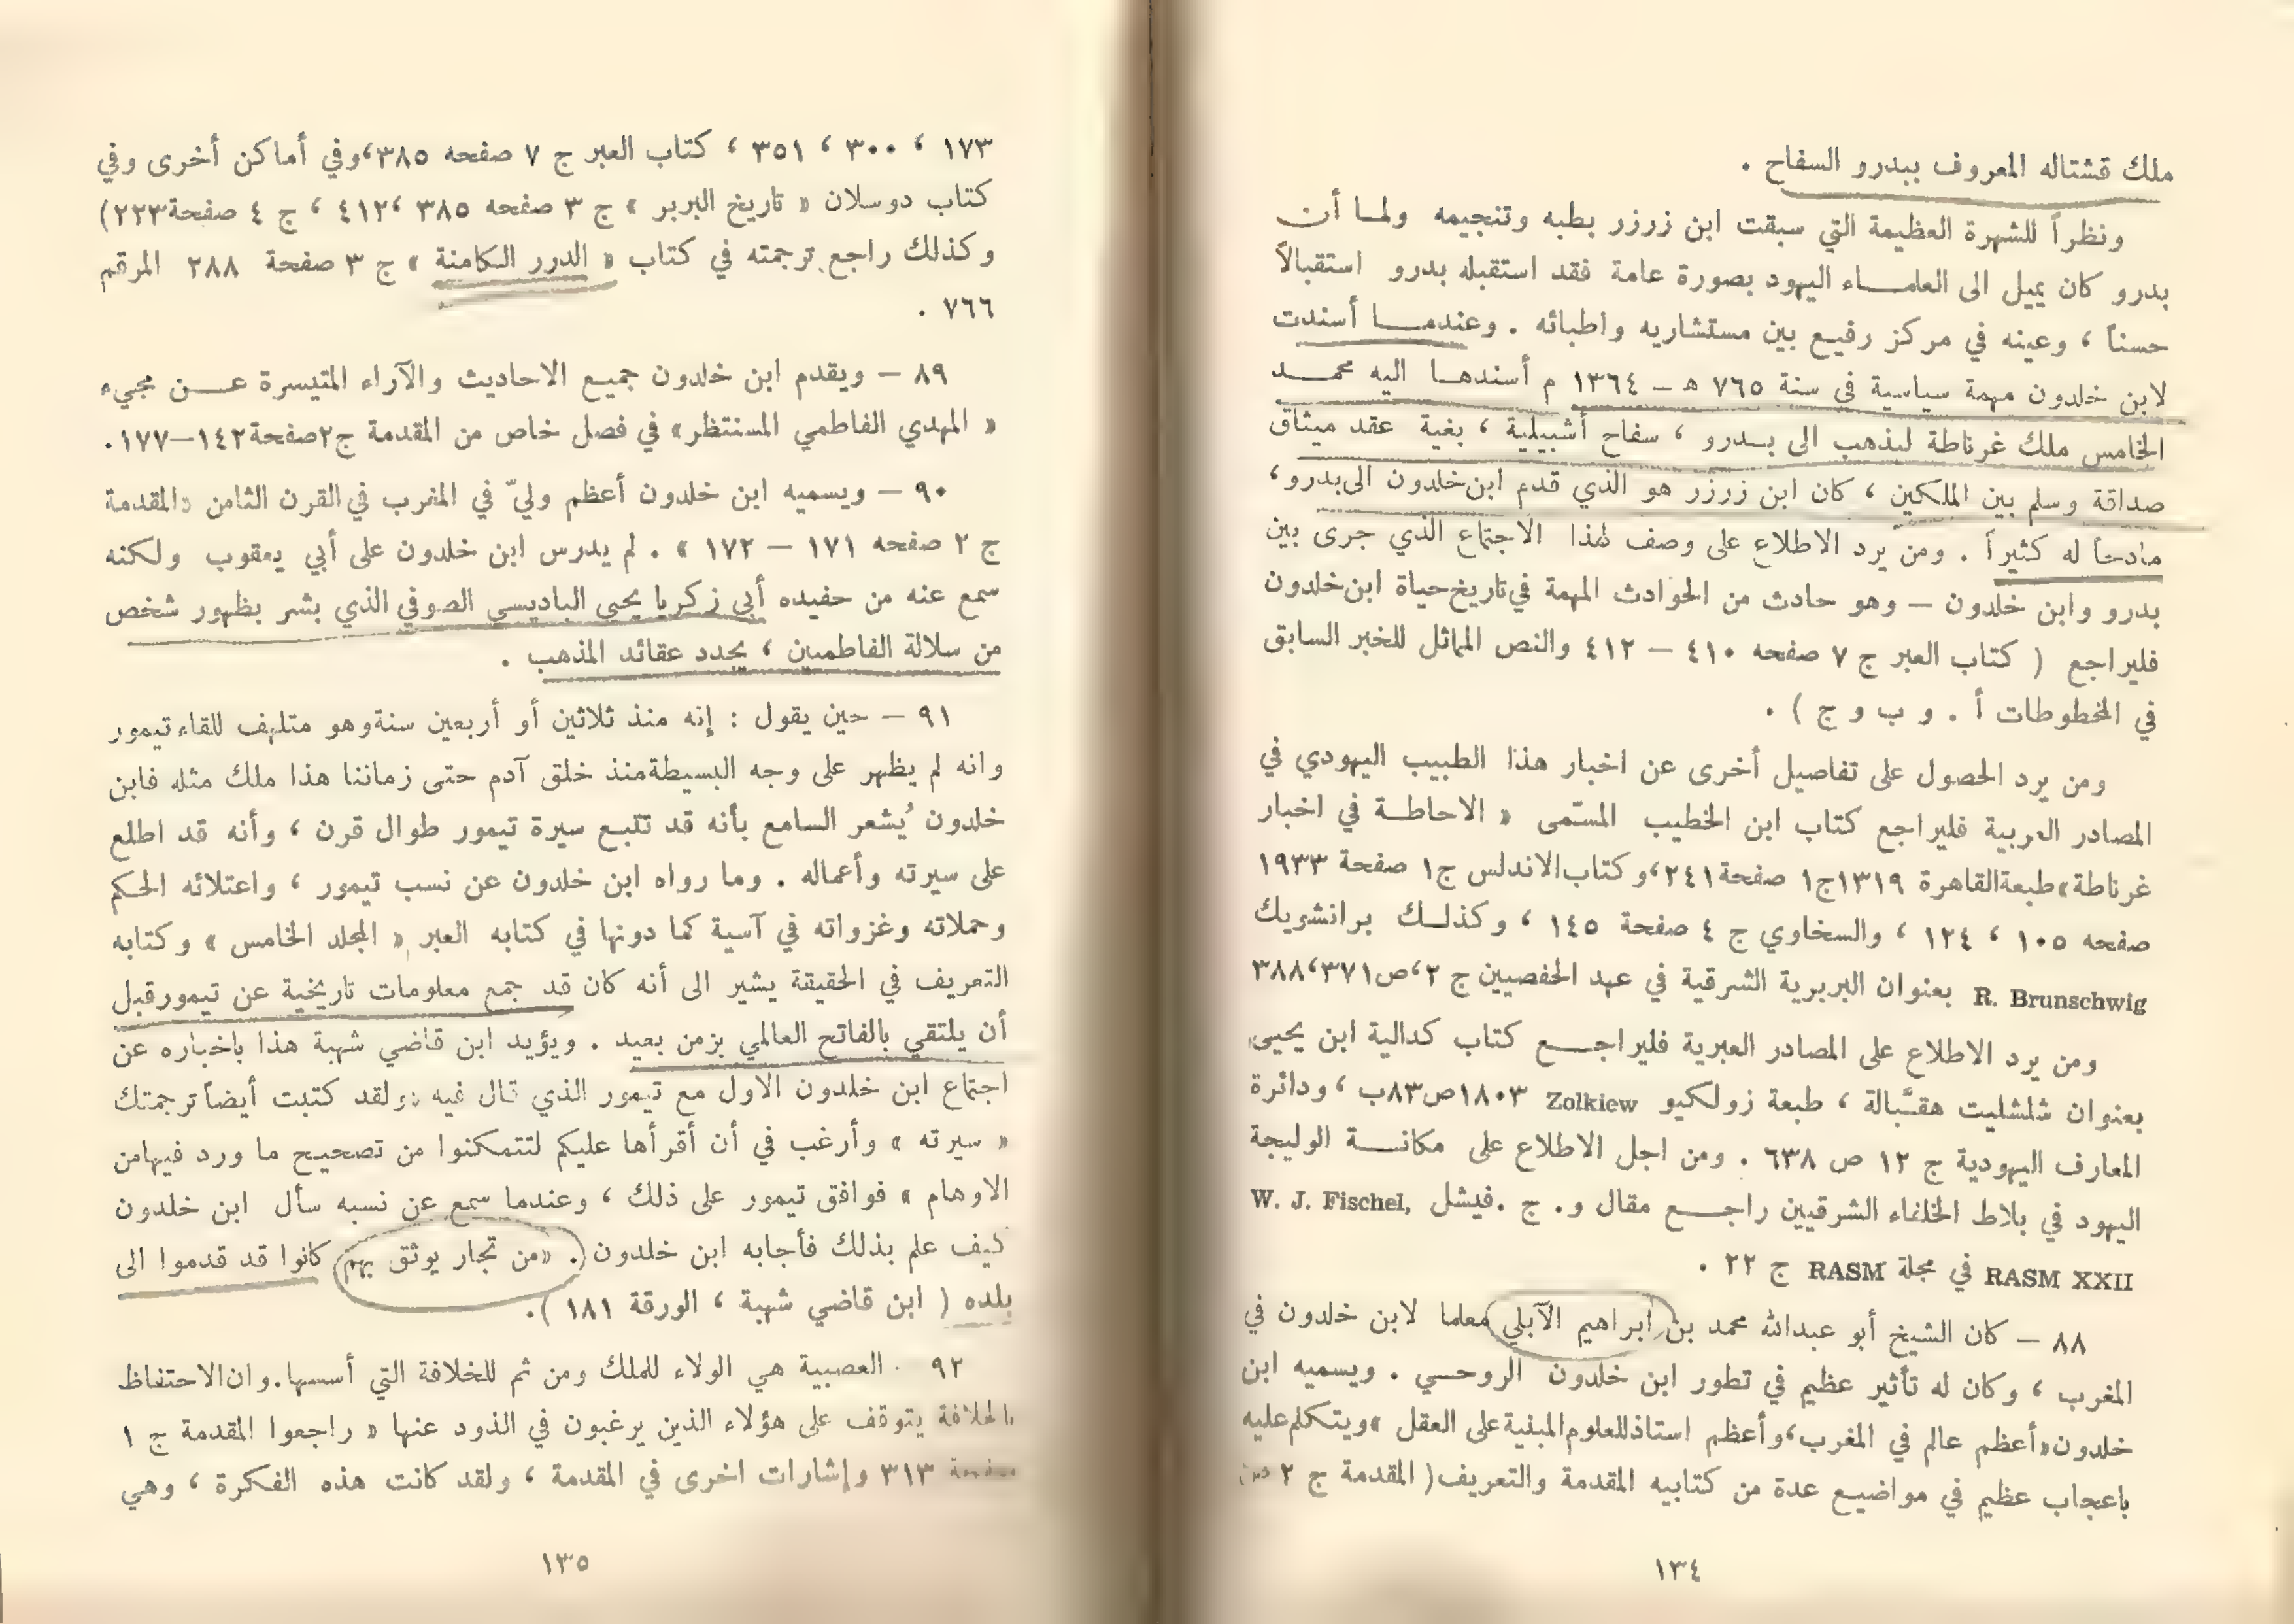 ملك قشتاله المعروف ببدرو السفاح .
ونظراً للشهرة العظيمة التي سبقت ابن زرزر بطبه وتنجيمه ولما أن
بدرو كان يميل الى العلماء اليهود بصورة عامة فقد استقبله بدرو استقبالاً
حسناً ، وعينه في مركز رفيع بين مستشاريه واطبائه . وعندما أسندت
لابن خلدون مهمة سياسية في سنة ٧٦٥ هـ – ١٣٦٤ م أسندها اليه محمد
الخامس ملك غرناطة ليذهب الى بدرو ، سفاح أشبيلية ، بغية عقد ميثاق
صداقة وسلم بين الملكين ، كان ابن زرزر هو الذي قدم ابن خلدون الى بدرو ،
مادحاً له كثيراً . ومن يرد الاطلاع على وصف لهذا الاجتماع الذي جرى بين
بدرو وابن خلدون – وهو حادث من الحوادث المهمة في تاريخ حياة ابن خلدون
فليراجع ( كتاب العبر ج ٧ صفحه ٤١٠ – ٤١٢ والنص المماثل للخبر السابق
في المخطوطات أ . و ب و ج ) .
ومن يرد الحصول على تفاصيل أخرى عن اخبار هذا الطبيب اليهودي في
المصادر العربية فليراجع كتاب ابن الخطيب المسّمى « الاحاطة في اخبار
غرناطة » طبعة القاهرة ١٣١٩ ج ١ صفحة ٢٤١ ، وكتاب الاندلس ج ١ صفحة ١٩٣٣
صفحه ١٠٥ ، ١٢٤ ، والسخاوي ج ٤ صفحة ١٤٥ ، وكذلك برانشويك
R. Brunschwig بعنوان البربرية الشرقية في عهد الحفصيين ج ٢ ، ص ٣٧١ ، ٣٨٨
ومن يرد الاطلاع على المصادر العبرية فليراجع كتاب كدالية ابن يحيى
بعنوان شلشليت هقبّالة ، طبعة زولكيو Zolkiew ١٨٠٣ ص ٨٣ب ، ودائرة
المعارف اليهودية ج ١٢ ص ٦٣٨ . ومن اجل الاطلاع على مكانة الوليجة
اليهود في بلاط الخلفاء الشرقيين راجع مقال و. ج .فيشل W. J. Fischel,
RASM XXII في مجلة RASM ج ٢٢ .
٨٨ – كان الشيخ أبو عبدالله محمد بن ابراهيم الآبلي معلما لابن خلدون في
المغرب ، وكان له تأثير عظيم في تطور ابن خلدون الروحي . ويسميه ابن
خلدون « أعظم عالم في المغرب ، وأعظم استاذ للعلوم المبنية على العقل » ويتكلم عليه
باعجاب عظيم في مواضيع عدة من كتابيه المقدمة والتعريف ( المقدمة ج ٢ ص
١٣٤
١٧٣ ، ٣٠٠ ، ٣٥١ ، كتاب العبر ج ٧ صفحه ٣٨٥ ، وفي أماكن أخرى وفي
كتاب دوسلان « تاريخ البربر » ج ٣ صفحه ٣٨٥ ، ٤١٢ ، ج ٤ صفحة ٢٢٣)
وكذلك راجع ترجمته في كتاب « الدرر الكامنة » ج ٣ صفحة ٢٨٨ المرقم
٧٦٦ .
٨٩ – ويقدم ابن خلدون جميع الاحاديث والآراء المتيسرة عن مجيء
« المهدي الفاطمي المستنظر » في فصل خاص من المقدمة ج ٢ صفحة ١٤٢–١٧٧ .
٩٠ – ويسميه ابن خلدون أعظم وليّ في المغرب في القرن الثامن « المقدمة
ج ٢ صفحه ١٧١ – ١٧٢ » . لم يدرس ابن خلدون على أبي يعقوب ولكنه
سمع عنه من حفيده أبي زكريا يحيى الباديسي الصوفي الذي بشر بظهور شخص
من سلالة الفاطميين ، يجدد عقائد المذهب .
٩١ – حين يقول : إنه منذ ثلاثين أو أربعين سنة وهو متلهف للقاء تيمور
وانه لم يظهر على وجه البسيطة منذ خلق آدم حتى زماننا هذا ملك مثله فابن
خلدون يُشعر السامع بأنه قد تتبع سيرة تيمور طوال قرن ، وأنه قد اطلع
على سيرته وأعماله . وما رواه ابن خلدون عن نسب تيمور ، واعتلائه الحكم
وحملاته وغزواته في آسية كما دونها في كتابه العبر « المجلد الخامس » وكتابه
التعريف في الحقيقة يشير الى أنه كان قد جمع معلومات تاريخية عن تيمور قبل
أن يلتقي بالفاتح العالمي بزمن بعيد . ويؤيد ابن قاضي شهبة هذا باخباره عن
اجتماع ابن خلدون الاول مع تيمور الذي قال فيه « ولقد كتبت أيضاً ترجمتك
« سيرته » وأرغب في أن أقرأها عليكم لتتمكنوا من تصحيح ما ورد فيها من
الاوهام » فوافق تيمور على ذلك ، وعندما سمع عن نسبه سأل ابن خلدون
كيف علم بذلك فأجابه ابن خلدون . « من تجار يوثق بهم كانوا قد قدموا الى
بلده ( ابن قاضي شهبة ، الورقة ١٨١ ) .
٩٢ - العصبية هي الولاء للملك ومن ثم للخلافة التي أسسها . وان الاحتفاظ
بالخلافة يتوقف على هؤلاء الذين يرغبون في الذود عنها « راجعوا المقدمة ج ١
صفحة ٣١٣ وإشارات اخرى في المقدمة ، ولقد كانت هذه الفكرة ، وهي
١٣٥